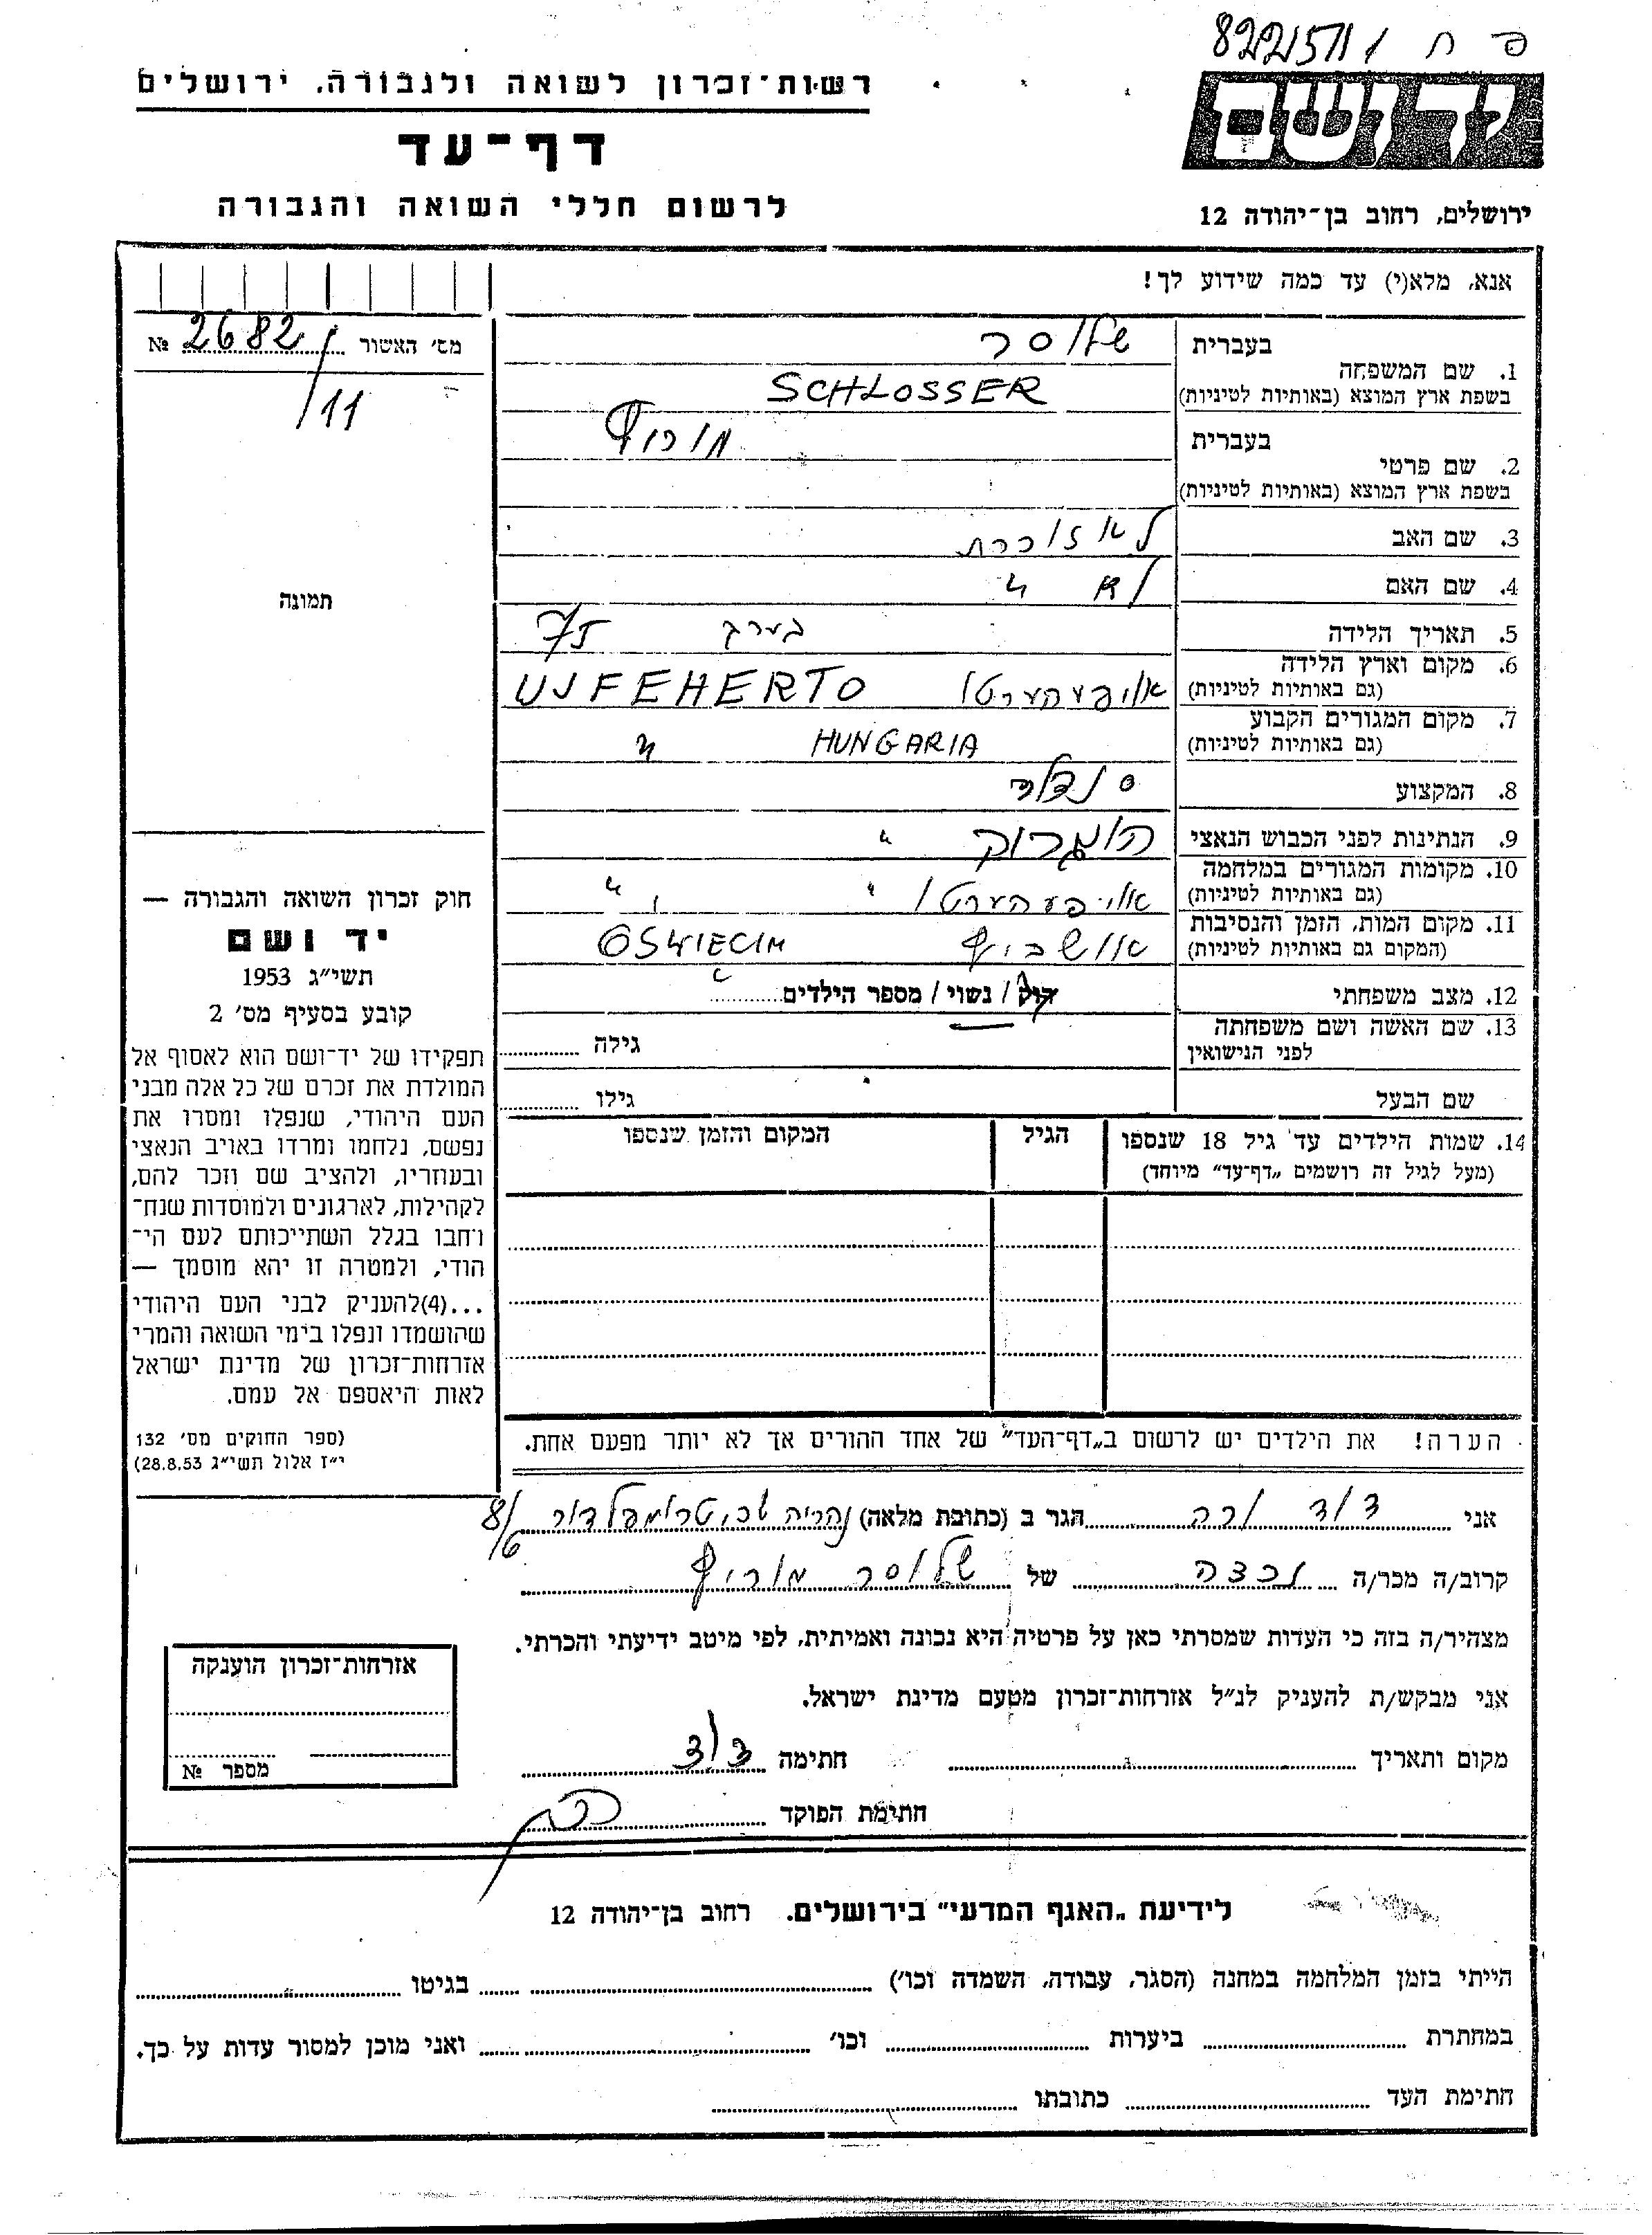 פ ח 8221571/
ידושם
רשות־זכרון לשואה ולגבורה, ירושלים
דף־עד
לרשום חללי השואה והגבורה
ירושלים, רחוב בן־יהודה 12
אנא, מלא(י) עד כמה שידוע לך!
מס׳ האשור 2682 №
/11
תמונה
1. שם המשפחה בעברית שלוסר
בשפת ארץ המוצא (באותיות לטיניות) SCHLOSSER
2. שם פרטי בעברית מוריץ
בשפת ארץ המוצא (באותיות לטיניות)
3. שם האב לא זוכרת
4. שם האם לא "
5. תאריך הלידה בערך 75
6. מקום וארץ הלידה (גם באותיות לטיניות) אויפעהערטו UJFEHERTO
7. מקום המגורים הקבוע (גם באותיות לטיניות) HUNGARIA "
8. המקצוע סנדלר
9. הנתינות לפני הכבוש הנאצי "
10. מקומות המגורים במלחמה (גם באותיות לטיניות) אויפעהערטו " "
11. מקום המות, הזמן והנסיבות (המקום גם באותיות לטיניות) אושביץ OSWIECIM
12. מצב משפחתי רוק / נשוי / מספר הילדים
13. שם האשה ושם משפחתה לפני הנישואין גילה
שם הבעל גילו
14. שמות הילדים עד גיל 18 שנספו הגיל המקום והזמן שנספו
(מעל לגיל זה רושמים „דף־עד״ מיוחד)
הערה! את הילדים יש לרשום ב„דף־העד״ של אחד ההורים אך לא יותר מפעם אחת.
חוק זכרון השואה והגבורה —
יד ושם
תשי״ג 1953
קובע בסעיף מס׳ 2
תפקידו של יד־ושם הוא לאסוף אל
המולדת את זכרם של כל אלה מבני
העם היהודי, שנפלו ומסרו את
נפשם, נלחמו ומרדו באויב הנאצי
ובעוזריו, ולהציב שם וזכר להם,
לקהילות, לארגונים ולמוסדות שנח־
רבו בגלל השתייכותם לעם הי־
הודי, ולמטרה זו יהא מוסמך —
...(4)להעניק לבני העם היהודי
שהושמדו ונפלו בימי השואה והמרי
אזרחות־זכרון של מדינת ישראל
לאות היאספם אל עמם.
(ספר החוקים מס׳ 132
י״ז אלול תשי״ג 28.8.53)
אני דוד ורה הגר ב (כתובת מלאה) נהריה שכ, טרומפלדור 8/6
קרוב/ה מכר/ה נכדה של שלוסר מוריץ
מצהיר/ה בזה כי העדות שמסרתי כאן על פרטיה היא נכונה ואמיתית, לפי מיטב ידיעתי והכרתי.
אני מבקש/ת להעניק לנ״ל אזרחות־זכרון מטעם מדינת ישראל.
מקום ותאריך חתימה דוד
חתימת הפוקד
אזרחות־זכרון הוענקה
מספר №
לידיעת „האגף המדעי״ בירושלים. רחוב בן־יהודה 12
הייתי בזמן המלחמה במחנה (הסגר, עבודה, השמדה וכו׳) בגיטו
במחתרת ביערות וכו׳ ואני מוכן למסור עדות על כך.
חתימת העד כתובתו